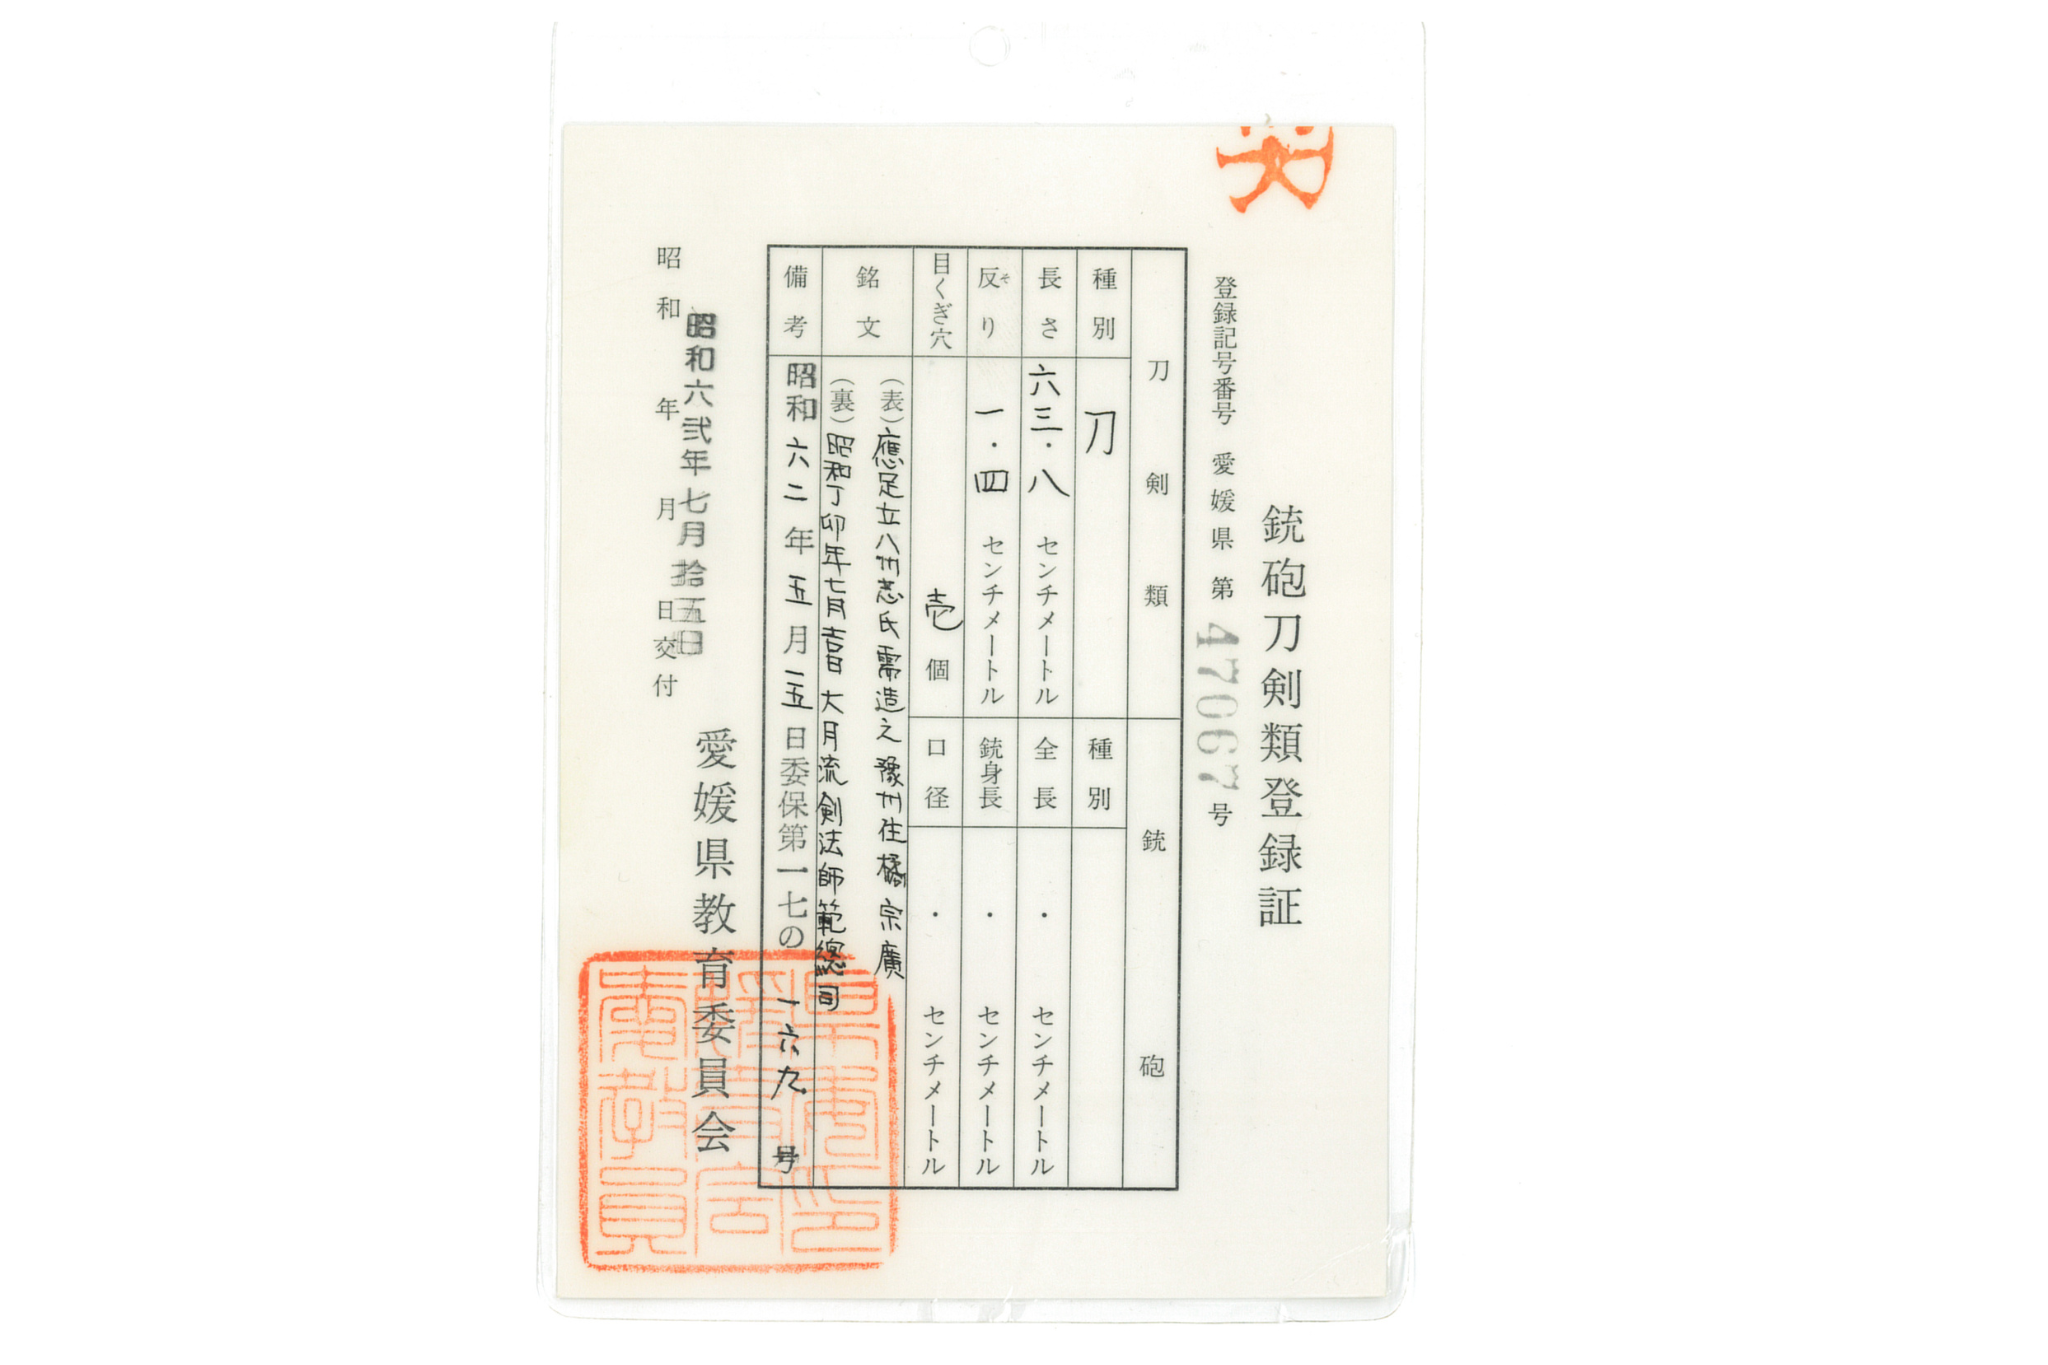 銃砲刀剣類登録証
登録記号番号 愛媛県 第 47067 号
刀剣類
銃砲
種別 刀
種別
長さ 六三・八 センチメートル
全長 ・ センチメートル
反り 一・四 センチメートル
そ
銃身長 ・ センチメートル
目くぎ穴 壱 個
口径 ・ センチメートル
銘文
(表)應足立八州志氏需造之 豫州住橘宗廣
(裏)昭和丁卯年七月吉日 大月流剣法師範總司
備考 昭和六二年五月一五日委保第一七の一六九号
昭和 年 月 日交付
昭和六弐年七月拾五日
愛媛県教育委員会